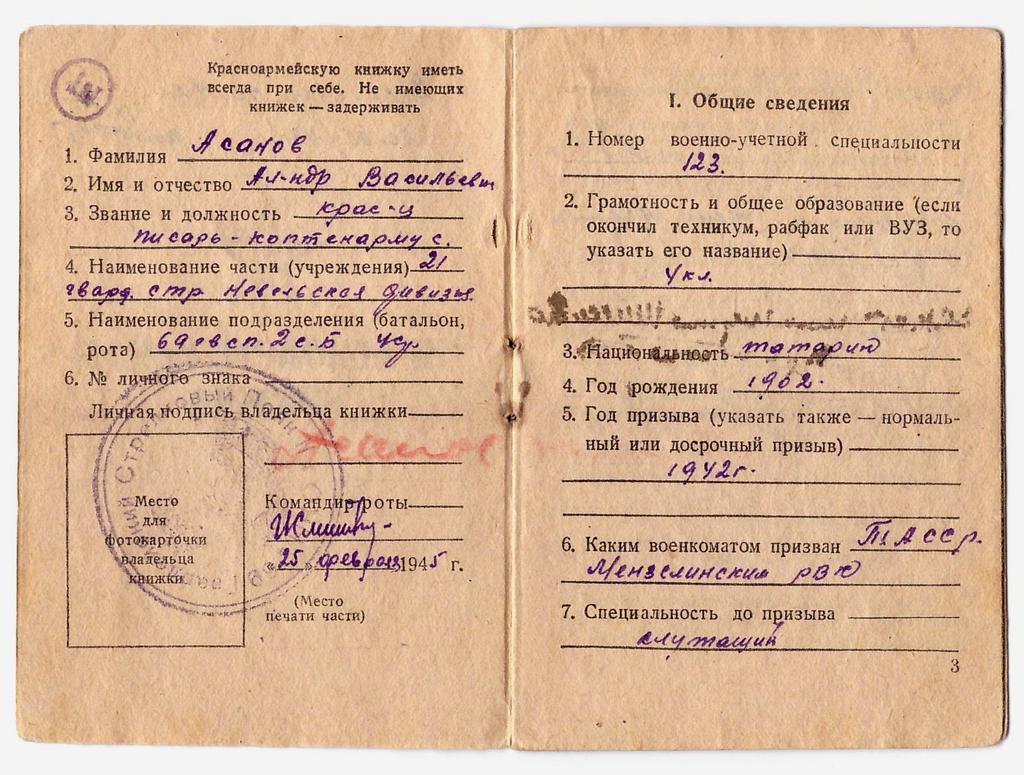 Красноармейскую книжку иметь
всегда при себе. Не имеющих
книжек — задерживать
1. Фамилия Асанов
2. Имя и отчество Ал-ндр Васильевич
3. Звание и должность крас-ц
писарь-каптенармус.
4. Наименование части (учреждения) 21
гвард. стр Невельская дивизия
5. Наименование подразделения (батальон,
рота) 69 гвсп. 2 с.Б
6. № личного знака
Личная подпись владельца книжки
Асанов
Место
для
фотокарточки
владельца
книжки
Стрелковый Полк
Командир роты
„25„ февраля 1945 г.
(Место
печати части)
I. Общие сведения
1. Номер военно-учетной специальности
123.
2. Грамотность и общее образование (если
окончил техникум, рабфак или ВУЗ, то
указать его название)
4 кл.
3. Национальность татарин
4. Год рождения 1902.
5. Год призыва (указать также — нормаль-
ный или досрочный призыв)
1942г.
6. Каким военкоматом призван ТАССР.
Мензелинским РВК
7. Специальность до призыва
служащий
3